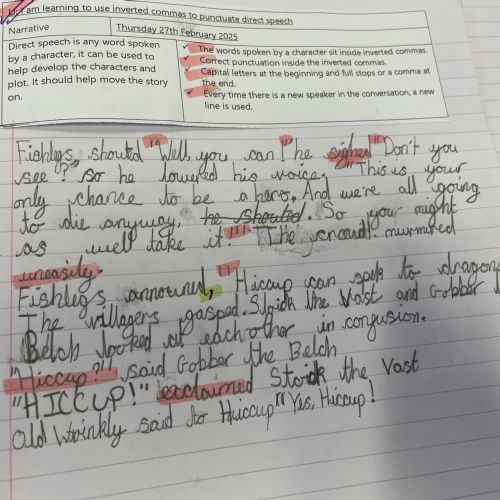 LI: I am learning to use inverted commas to punctuate direct speech
Narrative
Thursday 27th February 2025
Direct speech is any word spoken
by a character, it can be used to
help develop the characters and
plot. It should help move the story
on.
✓ The words spoken by a character sit inside inverted commas.
✓ Correct punctuation inside the inverted commas.
✓ Capital letters at the beginning and full stops or a comma at
the end.
✓ Every time there is a new speaker in the conversation, a new
line is used.
Fishlegs shouted "Well you can!" he sighed "Don't you
see?" so he lowered his voice. "This is your
only chance to be a hero. And we're all going
to die anyway, he shouted. So you might
as well take it!" The crowd murmured
uneasily.
Fishlegs announed, "Hiccup can spek to dragons
The villagers gasped. Stoick the Vast and Gobber the
Belch looked at eachother in congusion.
"Hiccup?" said Gobber the Belch
"HICCUP!" exclaimed Stoick the Vast
Old Wrinkly said to Hiccup "Yes, Hiccup!